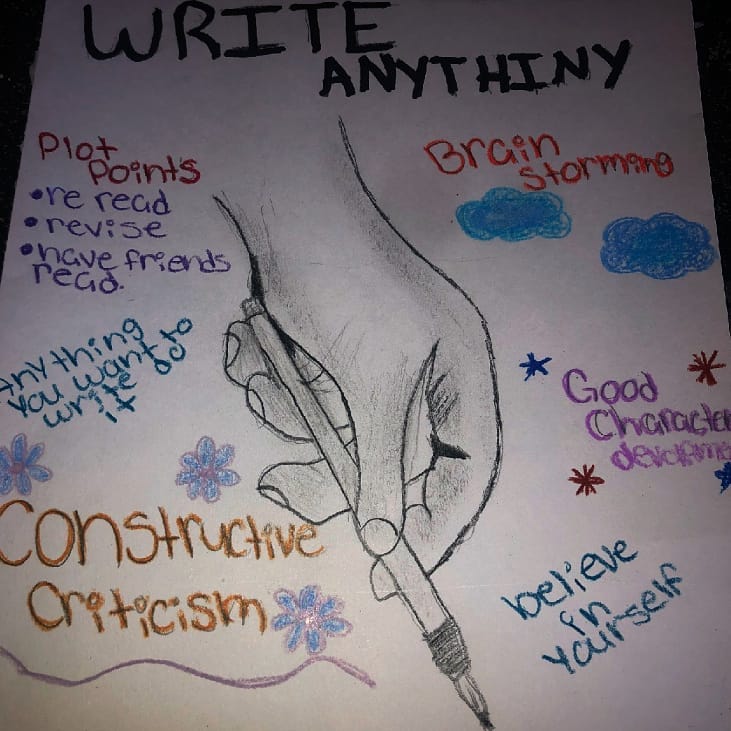 WRITE
ANYTHINY
Plot
Points
•re read
•revise
•have friends
read.
Brain
storming
anything
you want to
write do
it
Good
Character
Constructive
Criticism
believe
in
yourself